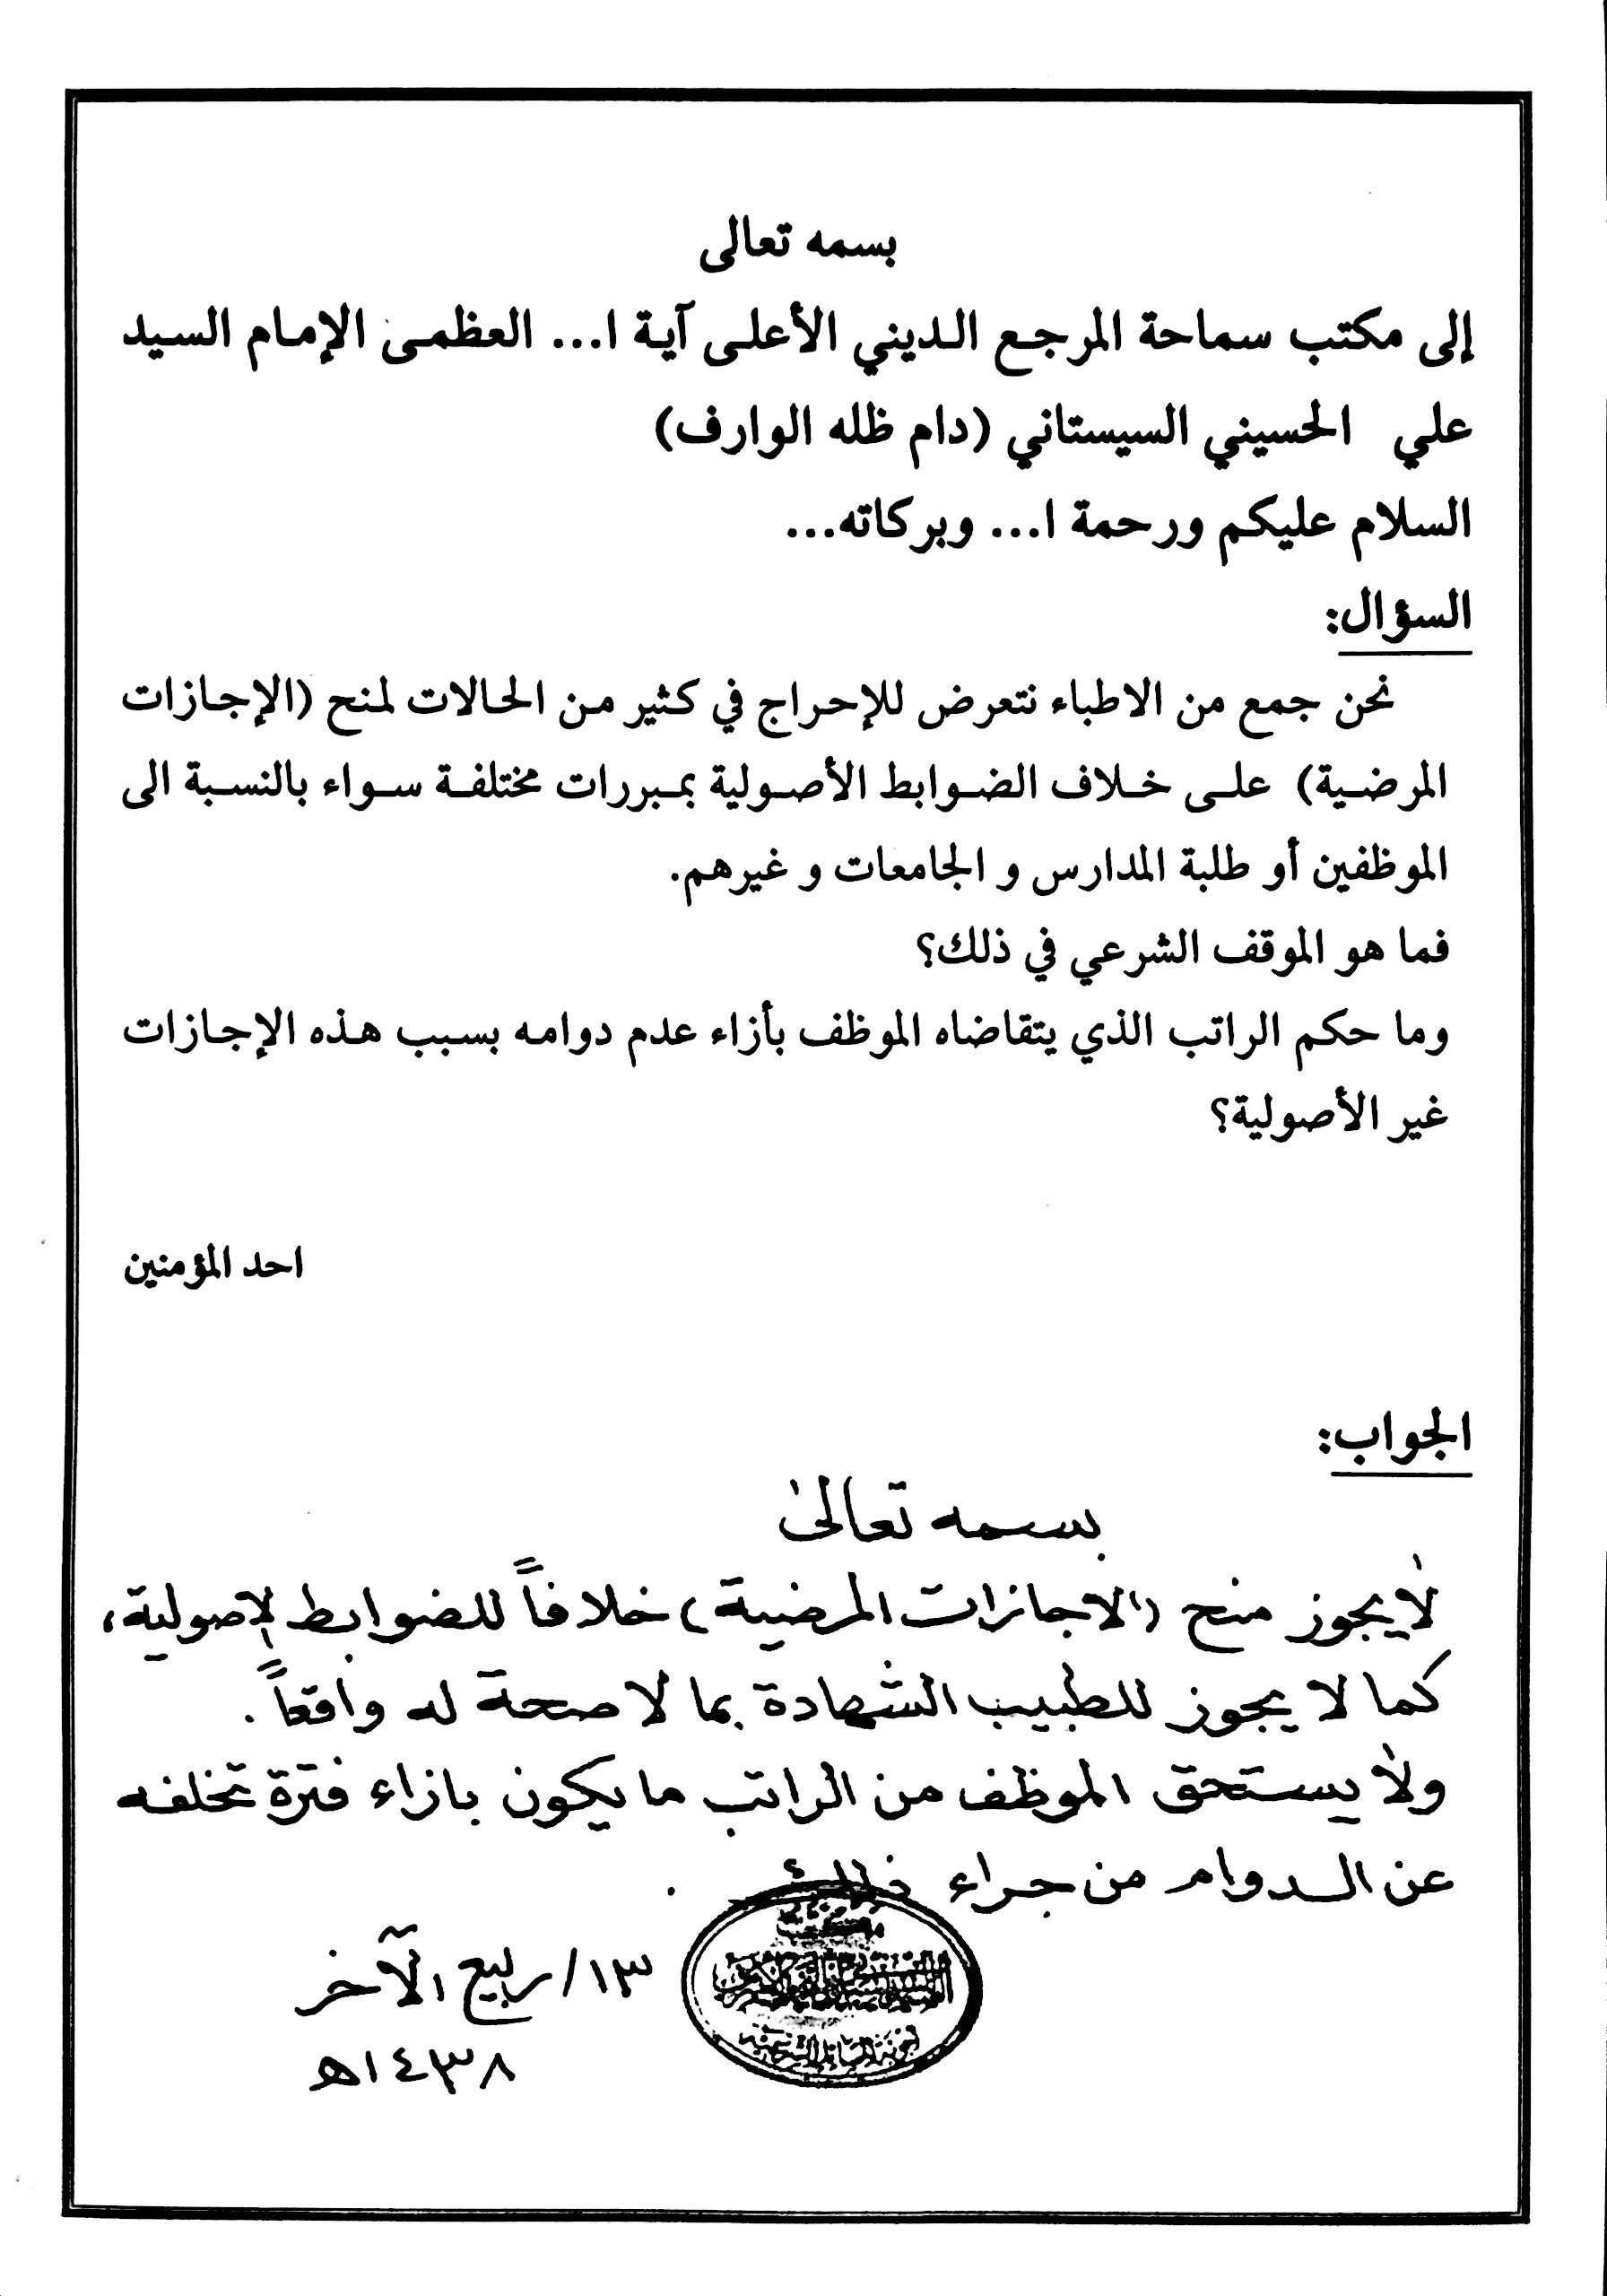 بسمه تعالى
إلى مكتب سماحة المرجع الديني الأعلى آية ا... العظمى الإمام السيد
علي الحسيني السيستاني (دام ظله الوارف)
السلام عليكم ورحمة ا... وبركاته...
السؤال:
نحن جمع من الاطباء نتعرض للإحراج في كثير من الحالات لمنح (الإجازات
المرضية) على خلاف الضوابط الأصولية بمبررات مختلفة سواء بالنسبة الى
الموظفين أو طلبة المدارس و الجامعات و غيرهم.
فما هو الموقف الشرعي في ذلك؟
وما حكم الراتب الذي يتقاضاه الموظف بأزاء عدم دوامه بسبب هذه الإجازات
غير الأصولية؟
احد المؤمنين
الجواب:
بسمه تعالى
لا يجوز منح (الاجازات المرضية) خلافاً للضوابط الإصولية،
كما لا يجوز للطبيب الشهادة بما لا صحة له واقعاً.
ولا يستحق الموظف من الراتب ما يكون بازاء فترة تخلفه
عن الدوام من جراء ذلك.
مكتب
١٣/ ربيع الآخر
١٤٣٨هـ